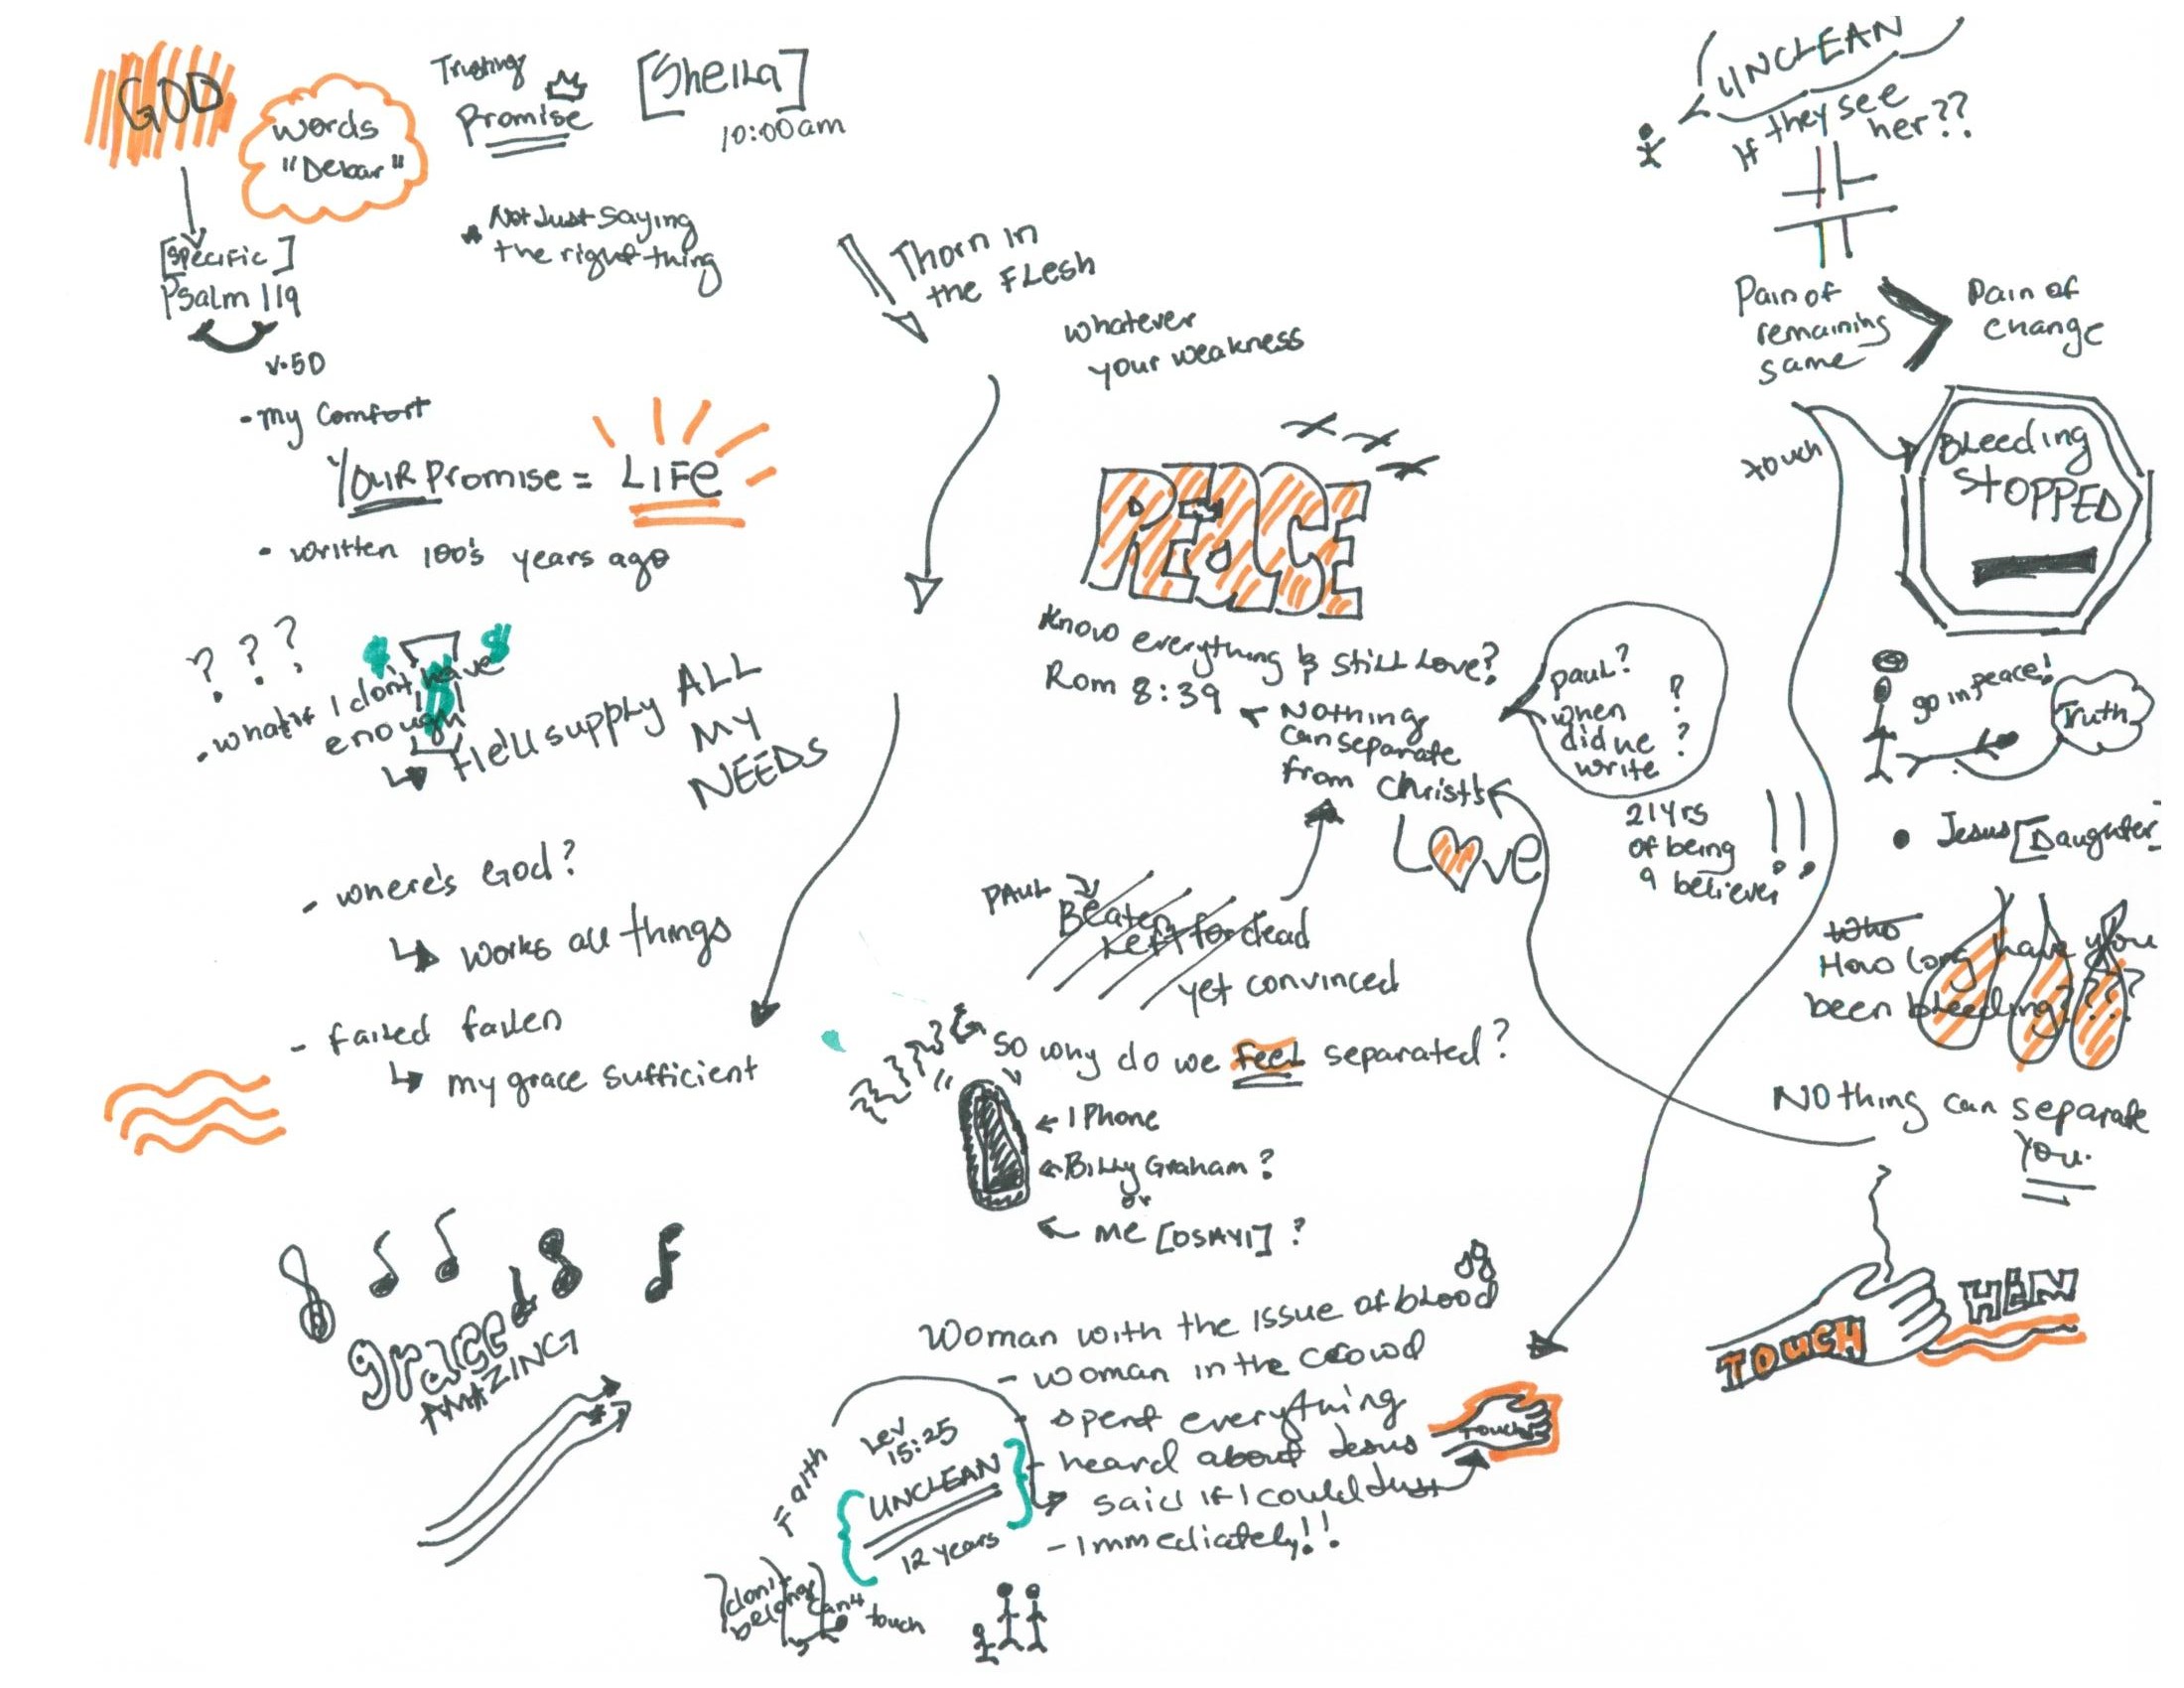 GOD
words
"Debar"
Trusting
Promise
[Sheila]
10:00am
[Specific]
Psalm 119
v.50
* Not Just Saying
the right thing
- My Comfort
YOUR Promise = LIFE
• written 100's years ago
? ? ?
- what if I don't have
enough
$ $
He'll supply ALL
MY
NEEDS
- where's God?
works all things
- failed fallen
my grace sufficient
grace
AMAZING
Thorn in
the Flesh
whatever
your weakness
PEACE
Know everything & still Love?
Rom 8:39
Nothing
can separate
from Christ's
Love
Paul?
when ?
did he ?
write
21yrs
of being
a believer
!!
PAUL
Beaten
Left for dead
yet convinced
So why do we feel separated?
IPhone
Billy Graham?
or
me [OSAYI]?
Woman with the issue of blood
- woman in the crowd
- spent everything
- heard about Jesus
said if I could Just
- Immediately!!
Touch
Faith
Lev
15:25
UNCLEAN
12 years
don't
belong
can't
touch
UNCLEAN
If they see
her??
Pain of
remaining
same
>
Pain of
change
touch
Bleeding
STOPPED
go in peace!
Truth
• Jesus [Daughter]
Who
How long have you
been bleeding???
Nothing can separate
You.
TOUCH
HEM